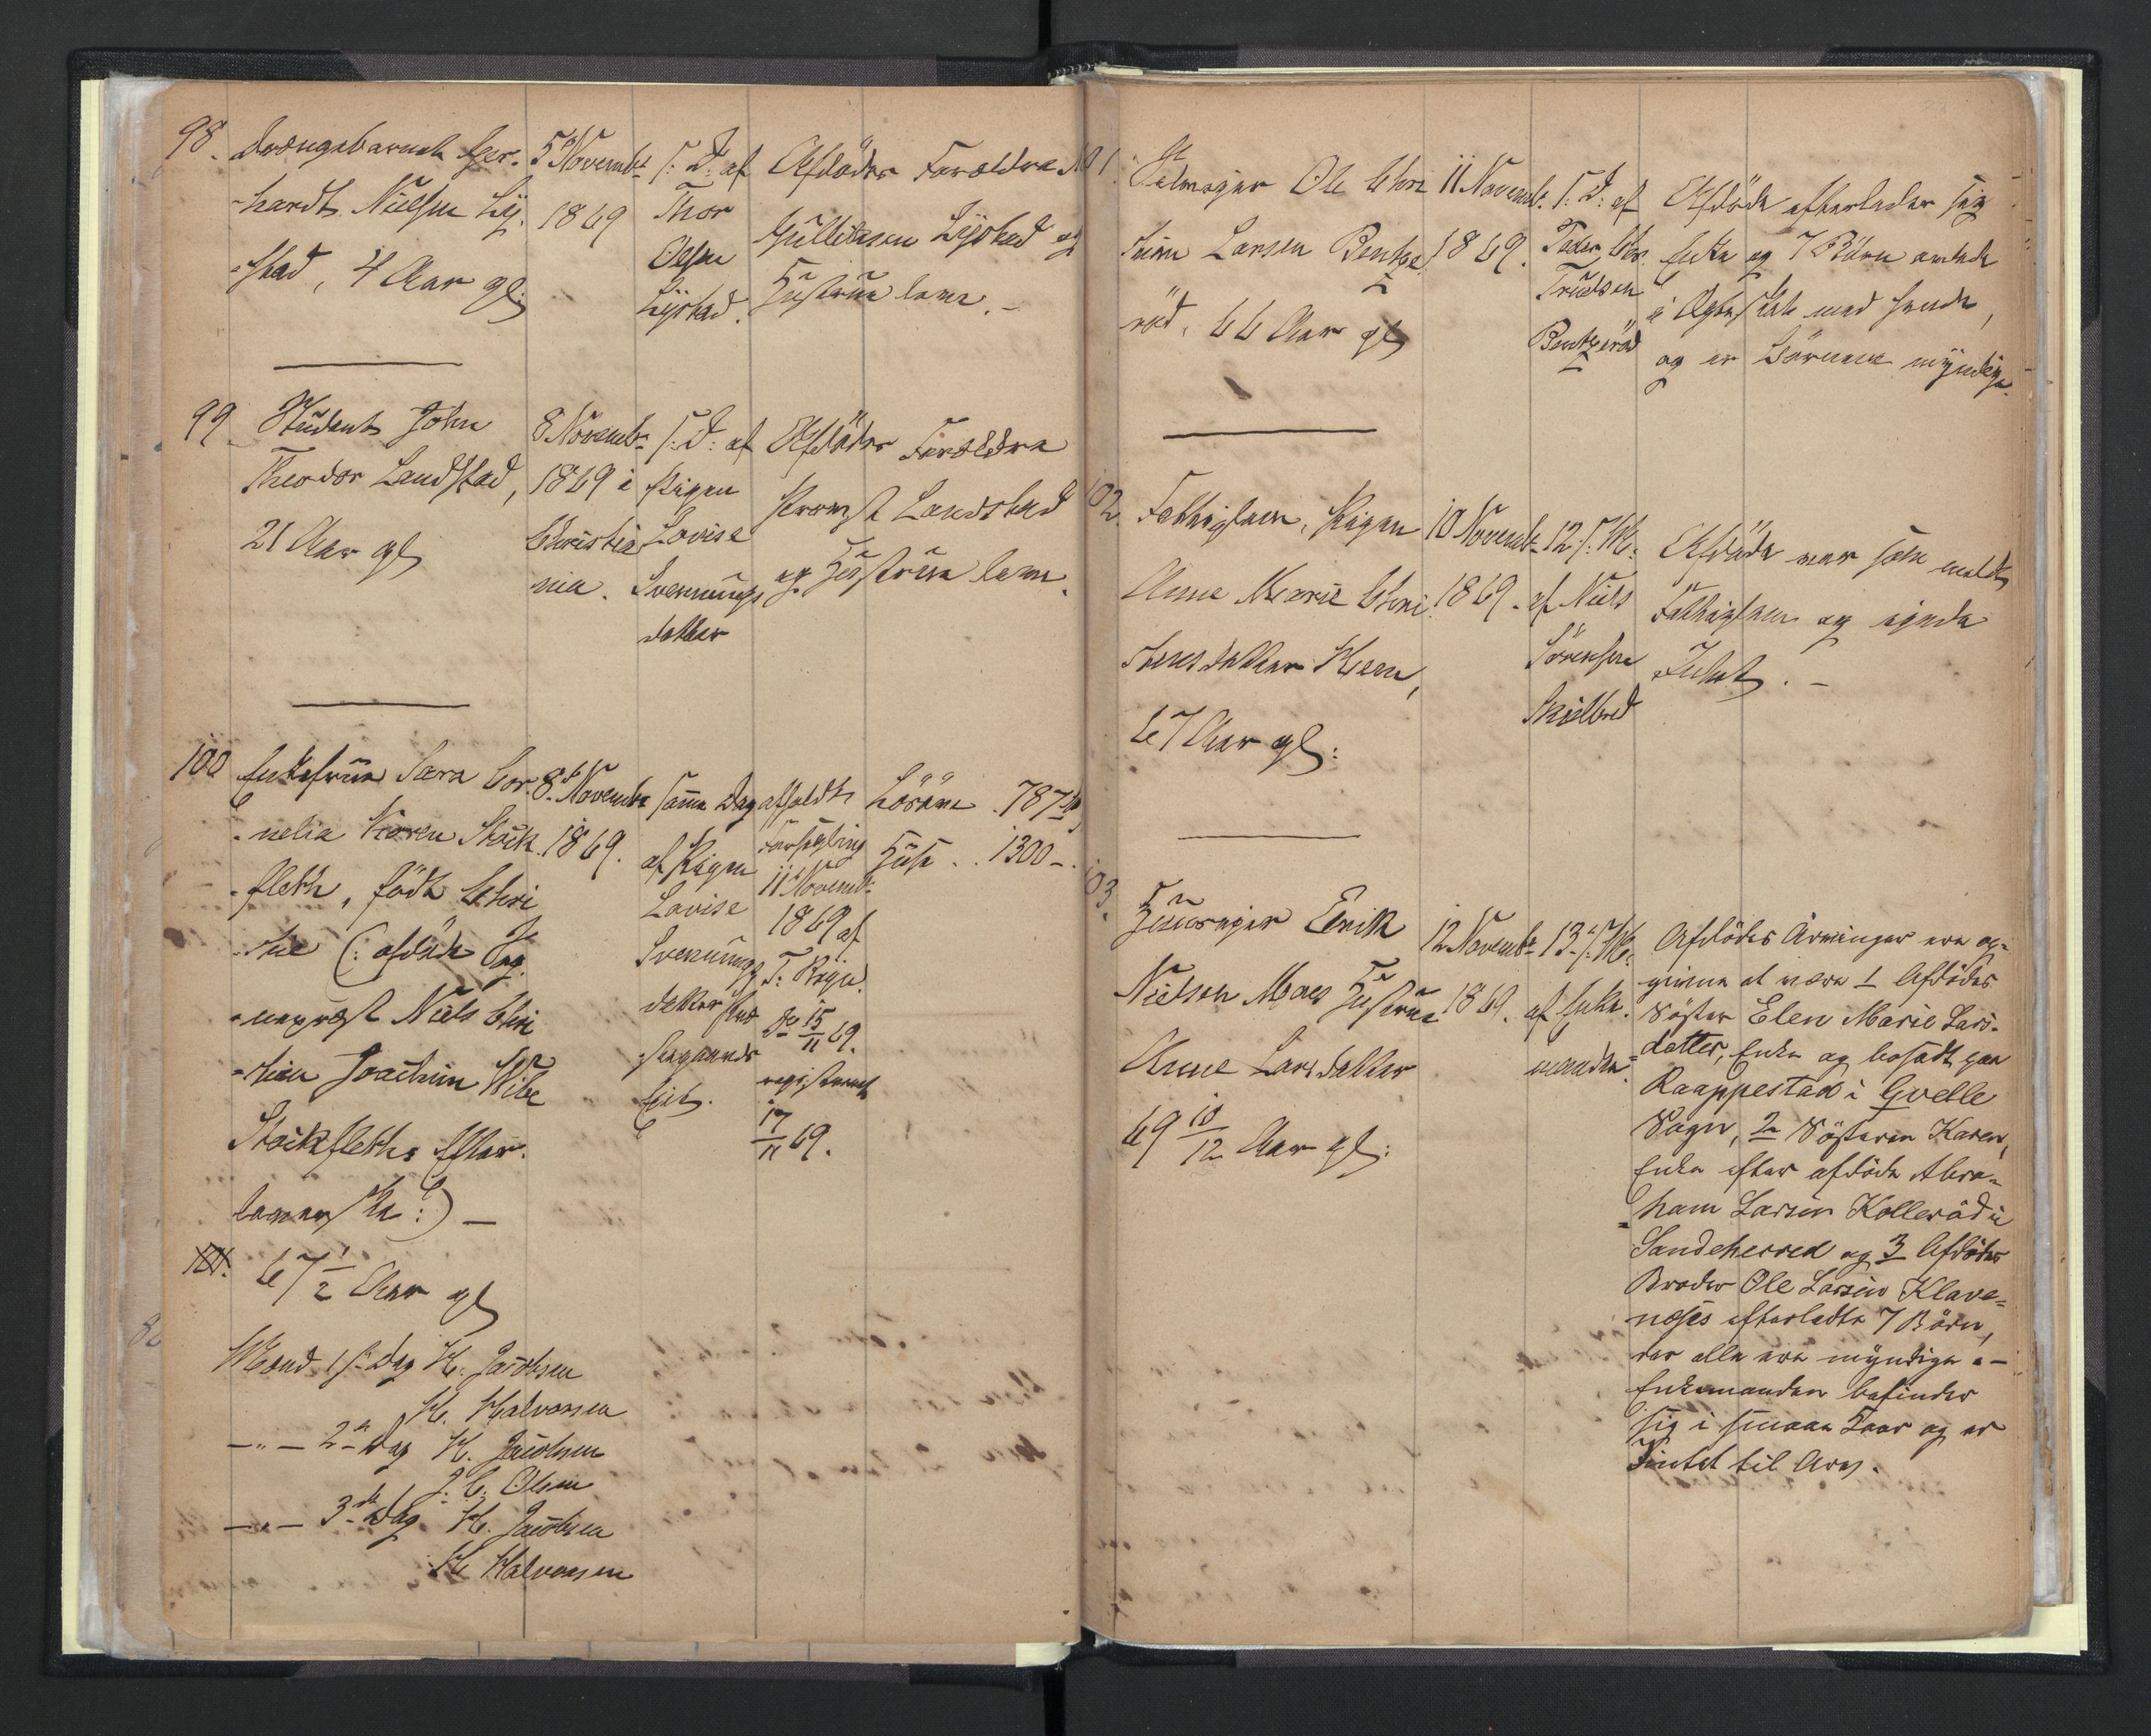 98. Drængebarnet Ger-
hardt Nielsen Ly-
stad, 4 Aar gl:
5 Novemb:
1869
s: D: af
Thor
Olsen
Lystad.
Afdødes Forældre
Gullik Lystad og
Hustrue leve. –
99. Student John
Theodor Landstad,
21 Aar gl
8 Novemb:
1869 i
Christia
nia.
s: D: af
Pigen
Lovise
Svennungs
datter
Afdødes Forældre
Provst Landstad
og Hustrue leve.
100 Enkefrue Sara Cor-
nelia Koren Stock-
fleth, født Chri
stie (: afdøde Sog-
neprest Niels Chri
stian Joachim Wibe
Stockfleths Efter-
leverske :) –
67 1/2 Aar gl
8 Novembr
1869.
samme Dag
af Pigen
Lovise
Svennungs
datter
afholdt
Forsegling
11 Novemb:
1869 af
15/11 69.
registreret
17/11 69.
Løsøre . 787
Huse . . 1300 –
101.
Mand 1ste Dag H. Jacobsen
H. Halvorsen
– " – 2den Dag H. Jacobsen
J. C. Olsen
– " – 3die Dag H. Jacobsen
H. Halvorsen
101. Selveier Ole Chri
stian Larsen Bentze
rød, 66 Aar gl
11 Novemb:
1869.
s: D: af
Peder Chr.
Trudsen
Bentzerød
Afdøde efterlader sig
Enke og 7 Børn avlede
i Ægteskab med hende,
og er Børnene myndige.
102. Fattiglem, Pigen
Anne Marie Chri
stensdatter Hem,
67 Aar gl:
10 Novemb:
1869.
12 s: M:
af Niels
Sørensen
Skielbred
Afdøde var
Fattiglem og eiede
Intet. –
103. Huuseier Erik
Nielsen Moes Hustrue
Anne Larsdatter
69 10/12 Aar gl:
12 Novemb:
1869.
13 s: M:
af Enke-
manden.
Afdødes Arvinger ere op-
givne at være 1 Afdødes
Søster Elen Marie Lars-
datter, Enke og bosadt paa
Raappestad i Qvelle
Sogn, 2 Søsteren Karen,
Enke efter afdøde Abra-
ham Larsen Kollerød i
Sandeherred og 3 Afdødes
Broder Ole Larsen Klave-
næses efterladte 7 Børn,
der alle ere myndige. –
Enkemanden befinder
sig i smaae Kaar og er
Intet til Arv.